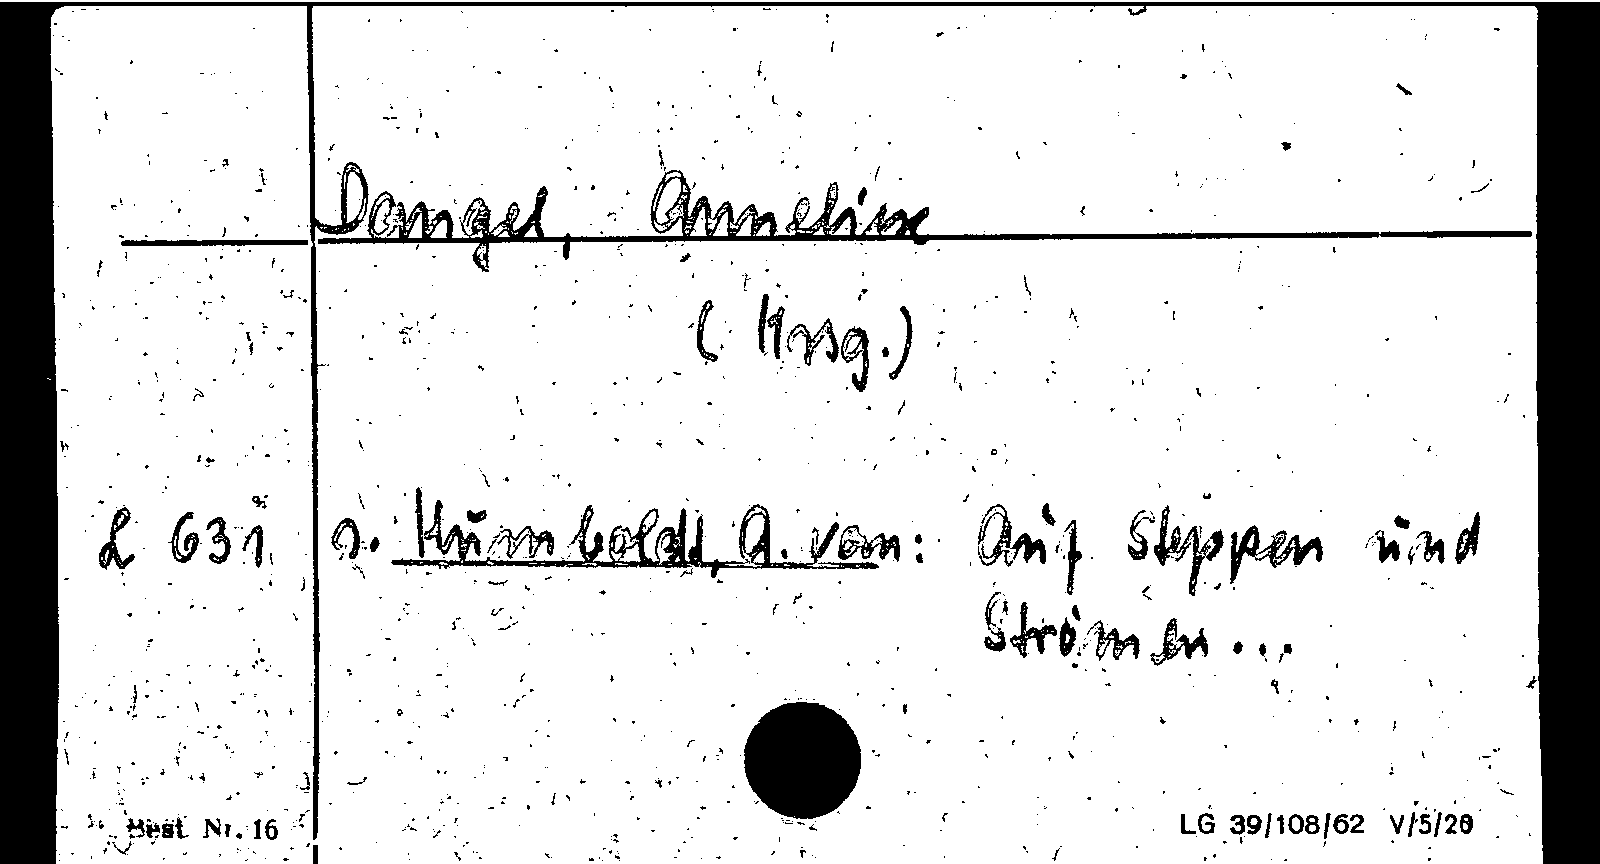 Dangel, Anneliese
(Hrsg.)
L 631 s. Humboldt, A. von: Auf Steppen und
Strömen...
Best Nr. 16
LG 39/108/62 V/5/20